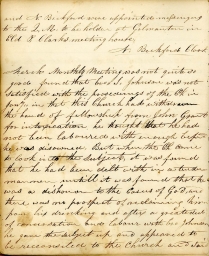 and N. Bickford were appointed messengers
to the Q. M. to be holden at Gilmanton in
Eld. P. Clarks meeting house
N. Bickford Clerk
Monthly Meeting was not quite so
good found that bro. J. Johnson was not
satisfied with the proceedings of the Ch in
that this Church had withdrawn
the hand of fellowship from John Grant
for intoxication he thought that he had
not been labored with enough before
he was disowned. But when the Ch came
to look into the subject, it was found
that he had been dealt with in a tender
manner untill it was found that he
was a dishonor to the Cause of God and
there was no prospect of reclaiming him
from his drinking and after a great deal
of conversation and labour with bro Johnson
he gave the subject up and appeared to
be reconciled to the Church